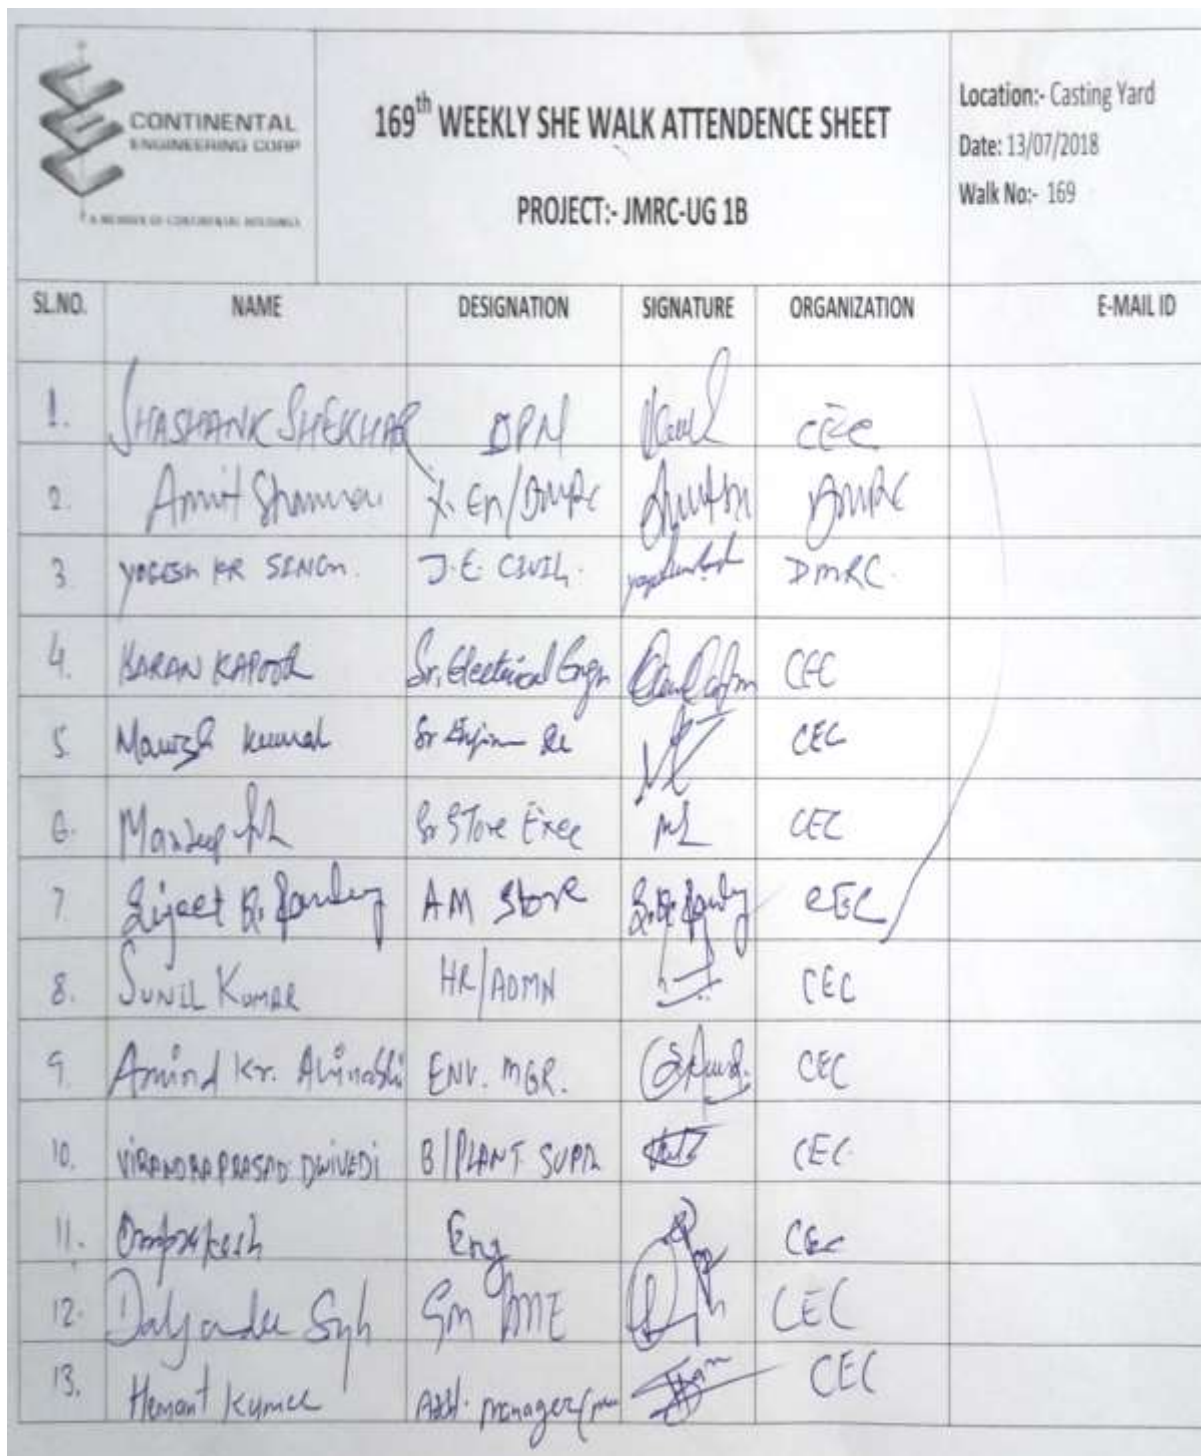 CONTINENTAL
ENGINEERING CORP
A MEMBER OF CONTINENTAL HOLDINGS
169th WEEKLY SHE WALK ATTENDENCE SHEET
PROJECT:- JMRC-UG 1B
Location:- Casting Yard
Date: 13/07/2018
Walk No:- 169
SL.NO. NAME DESIGNATION SIGNATURE ORGANIZATION E-MAIL ID
1. SHASHANK SHEKHAR DPM CEC
2. Amit Sharma X. En/DMRC DMRC
3 YOGESH KR SINGH. J.E. CIVIL. DMRC.
4. KARAN KAPOOR Sr. Electrical Engr CEC
5. Manish Kumar Sr CEC
6. Mandeep Sr Store Exec CEC
7 Pandey AM Store CEC
8. SUNIL KUMAR HR/ADMN CEC
9. Arvind Kr. Avinashi ENV. MGR. CEC
10. VIRANDRA PRASAD DWIVEDI B/PLANT SUPR CEC
11. Omprakash Eng CEC
12. CEC
13. Hemant Kumar Asst. manager CEC